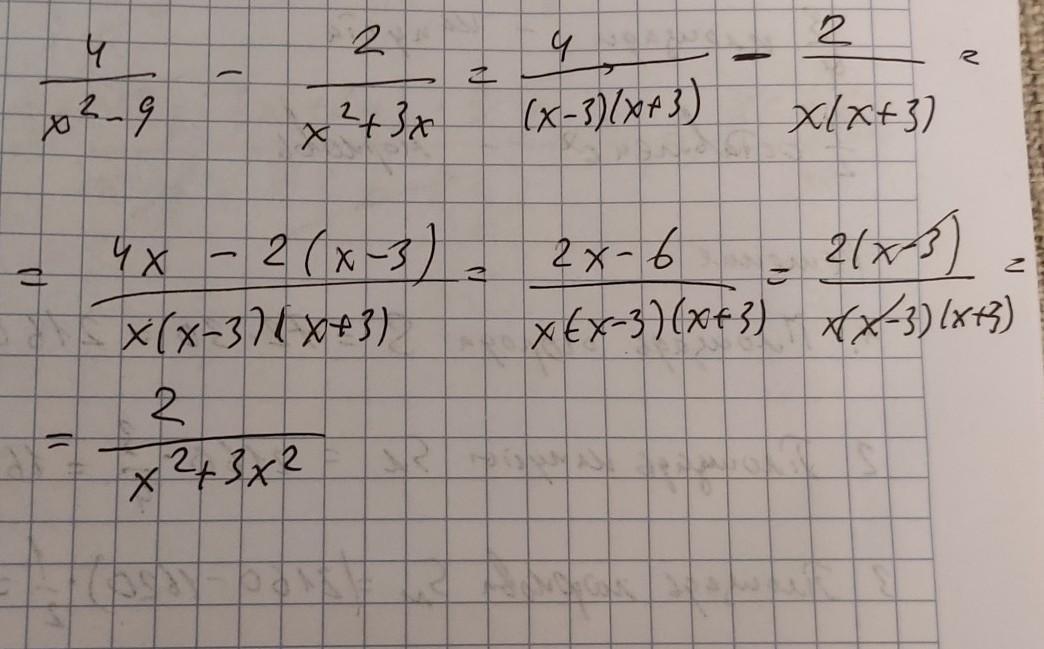 4/(x²-9) - 2/(x²+3x) = 4/((x-3)(x+3)) - 2/(x(x+3)) =
= (4x - 2(x-3))/(x(x-3)(x+3)) = (2x-6)/(x(x-3)(x+3)) = (2(x-3))/(x(x-3)(x+3)) =
= 2/(x²+3x²)